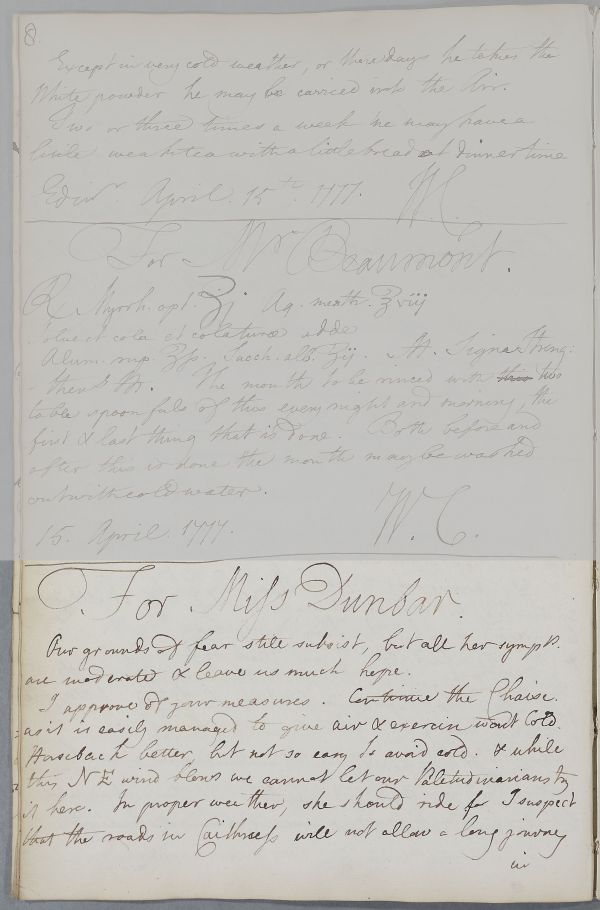 8.
Except in very cold weather, or those days he takes the
White powder he may be carried into the Air.
Two or three times a week he may have a
little weak tea with a little bread at dinner time
Edinr. April. 15th. 1777. W. C.
For Mr Beaumont.
℞. Myrrh. opt. ʒj Aq. menth. ℥viij
Solve et cola et colaturæ adde
Alum. rup. ʒſs. Sacch. alb. ʒij. M. Signa Streng:
thens M. The mouth to be rinced with two
table spoonfuls of this every night and morning, the
first & last thing that is done. Both before and
after this is done the mouth may be washed
out with cold water.
15. April. 1777. W. C.
For Miſs Dunbar.
Our grounds of fear still subsist, but all her sympts.
are moderated & leave us much hope.
I approve of your measures. Continue the Chaise
as it is easily managed to give air & exercise wont Cold.
Horseback better, but not so easy to avoid cold. & while
this N E wind blows we cannot let our Valetudinarians try
it here. In proper weather, she should ride for I suspect
that the roads in Caithneſs will not allow a long journey
in